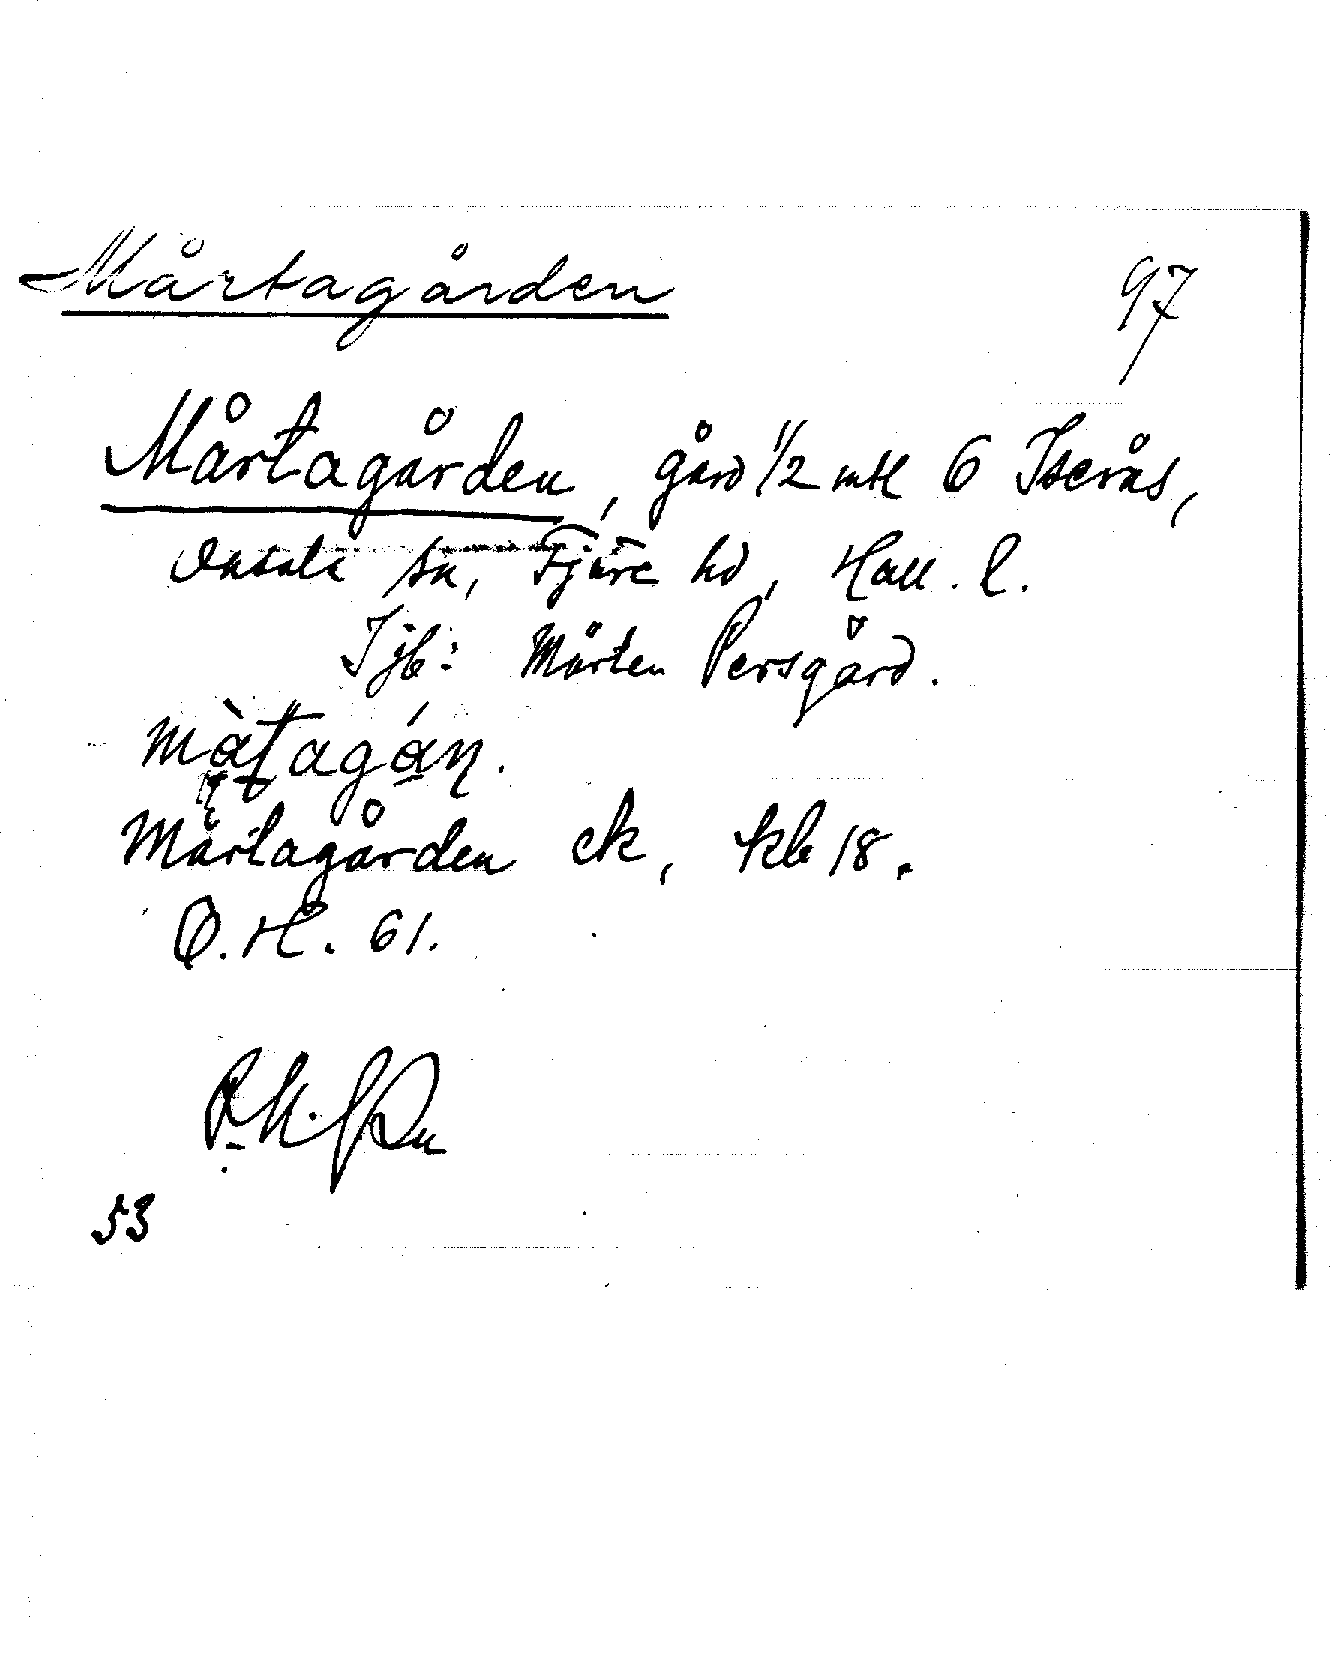 Mårtagården 97
Mårtagården, gård 1/2 mtl 6 Iserås,
Onsala sn, Fjäre hd, Hall. l.
Jjb: Mårten Persgård.
màtagán.
Mårtagården ek, kb 18.
O.H. 61.
53